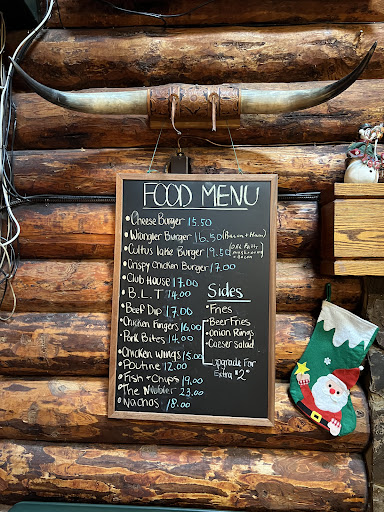 FOOD MENU
• Cheese Burger 15.50
• Wrangler Burger 16.50 (Bacon + Ham)
• Cultus Lake Burger 19.50 (1/2 lb Patty mushroom Bacon)
• Crispy Chicken Burger 17.00
• Club House 17.00
• B.L.T 14.00
• Beef Dip 17.00
• Chicken Fingers 16.00
• Pork Bites 14.00
• Chicken Wings 15.00
• Poutine 12.00
• Fish + Chips 19.00
• The Nibbler 23.00
• Nachos 18.00
Sides
• Fries
• Beer Fries
• Onion Rings
• Caeser Salad
• upgrade For Extra "2"